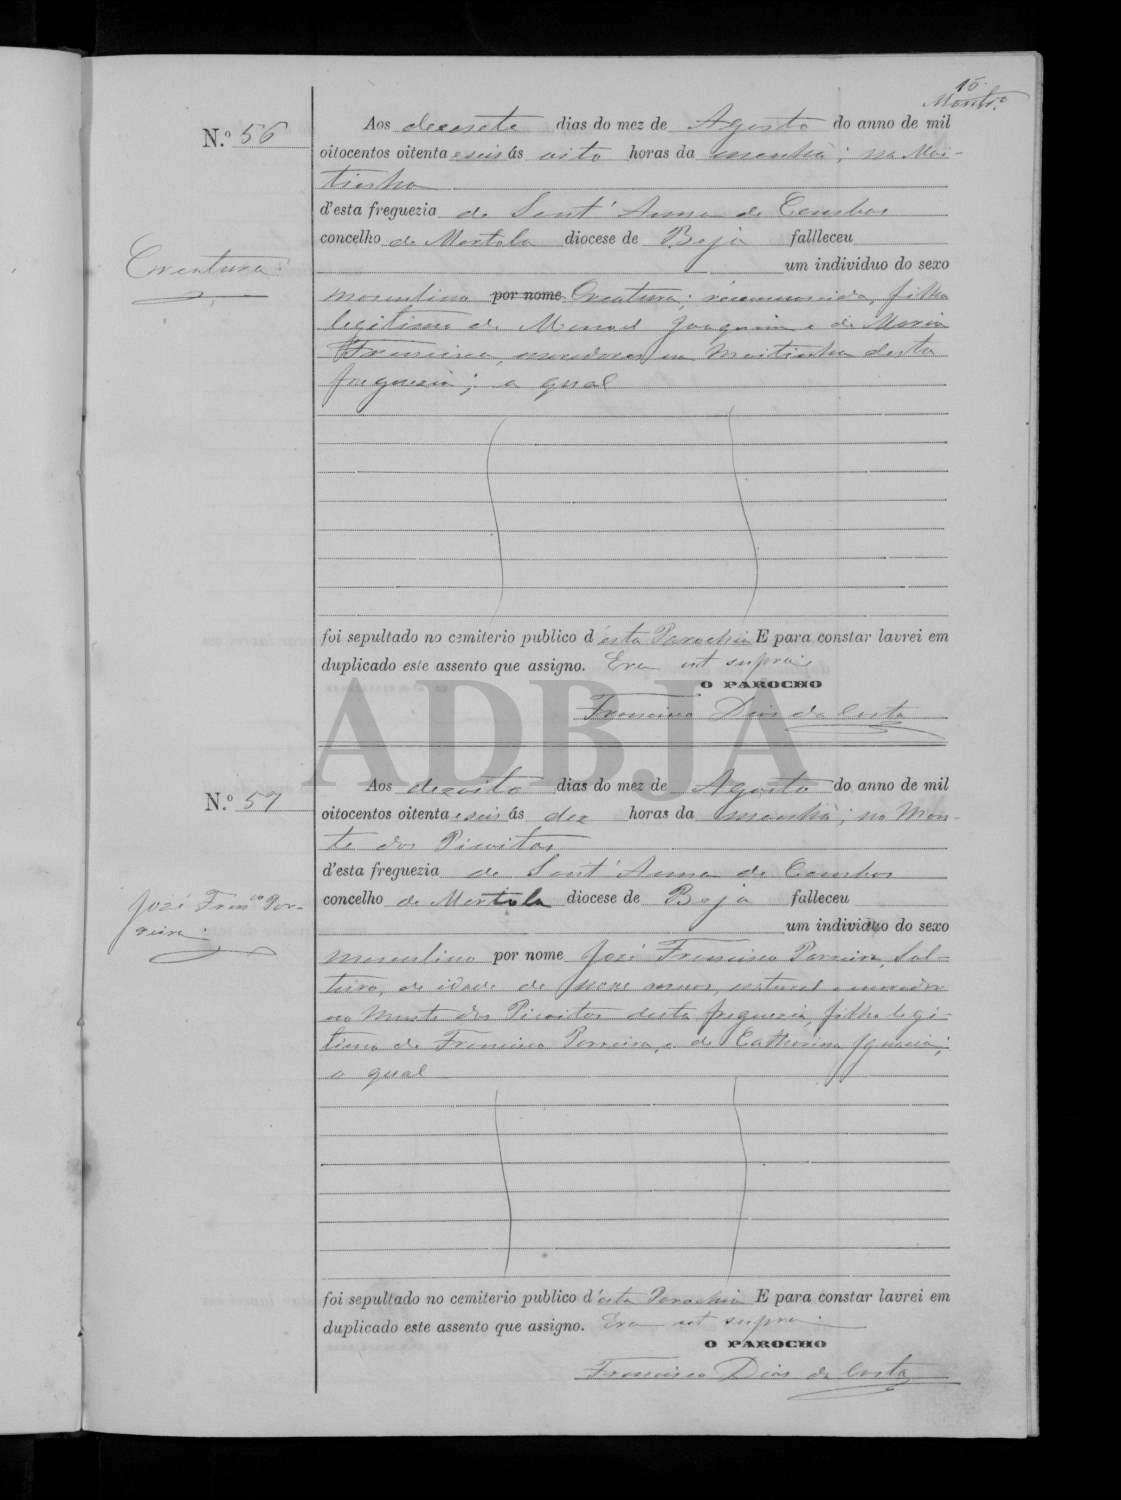 15
Montr.º
N.º 56
Aos dezasete dias do mez de Agosto do anno de mil
oitocentos oitenta e seis ás oito horas da manhã; na Moi-
tinha
d'esta freguezia de Sant'Anna de Cambas
concelho de Mertola diocese de Beja falleceu
Creatura
um individuo do sexo
masculino por nome Creatura; recemnascida, filha
legitima de Manoel Joaquim e de Maria
Francisca, moradores na Moitinha desta
freguezia; a qual
foi sepultado no cemiterio publico d'esta Parochia E para constar lavrei em
duplicado este assento que assigno. Era ut supra.
O PAROCHO
Francisco Dias da Costa
ADBJA
N.º 57
Aos dezoito dias do mez de Agosto do anno de mil
oitocentos oitenta e seis ás dez horas da manhã; no Mon-
te dos Picoitos
d'esta freguezia de Sant'Anna de Cambas
concelho de Mertola diocese de Beja falleceu
José Fran.co Par-
reira
um individuo do sexo
masculino por nome José Francisco Parreira, Sol-
teiro, de idade de nove annos, natural e morador
no Monte dos Picoitos desta freguezia, filho legi-
timo de Francisco Parreira, e de Catharina Ignacia;
o qual
foi sepultado no cemiterio publico d'esta Parochia E para constar lavrei em
duplicado este assento que assigno. Era ut supra.
O PAROCHO
Francisco Dias da Costa